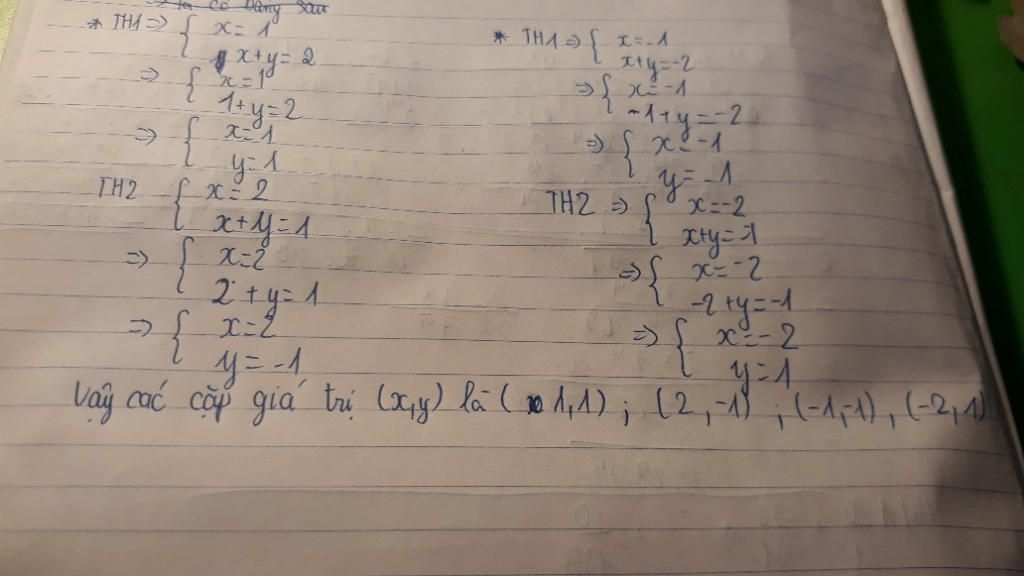 ⇒ ta có bảng sau
* TH1 ⇒ { x = 1
x+y = 2
⇒ { x = 1
1+y = 2
⇒ { x = 1
y = 1
TH2 { x = 2
x+y = 1
⇒ { x = 2
2 + y = 1
⇒ { x = 2
y = -1
* TH1 ⇒ { x = -1
x+y = -2
⇒ { x = -1
-1+y = -2
⇒ { x = -1
y = -1
TH2 ⇒ { x = -2
x+y = -1
⇒ { x = -2
-2+y = -1
⇒ { x = -2
y = 1
Vậy các cặp giá trị (x,y) là (1,1) ; (2,-1) ; (-1,-1) , (-2,1)